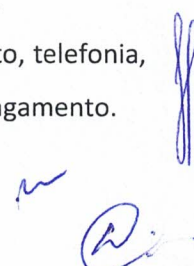 to, telefonia,
gamento.